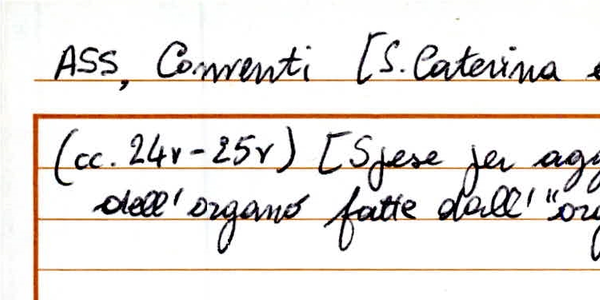 ASS, Conventi [S. Caterina e
(cc. 24v-25r) [Spese per agg
dell'organo fatte dall' "org